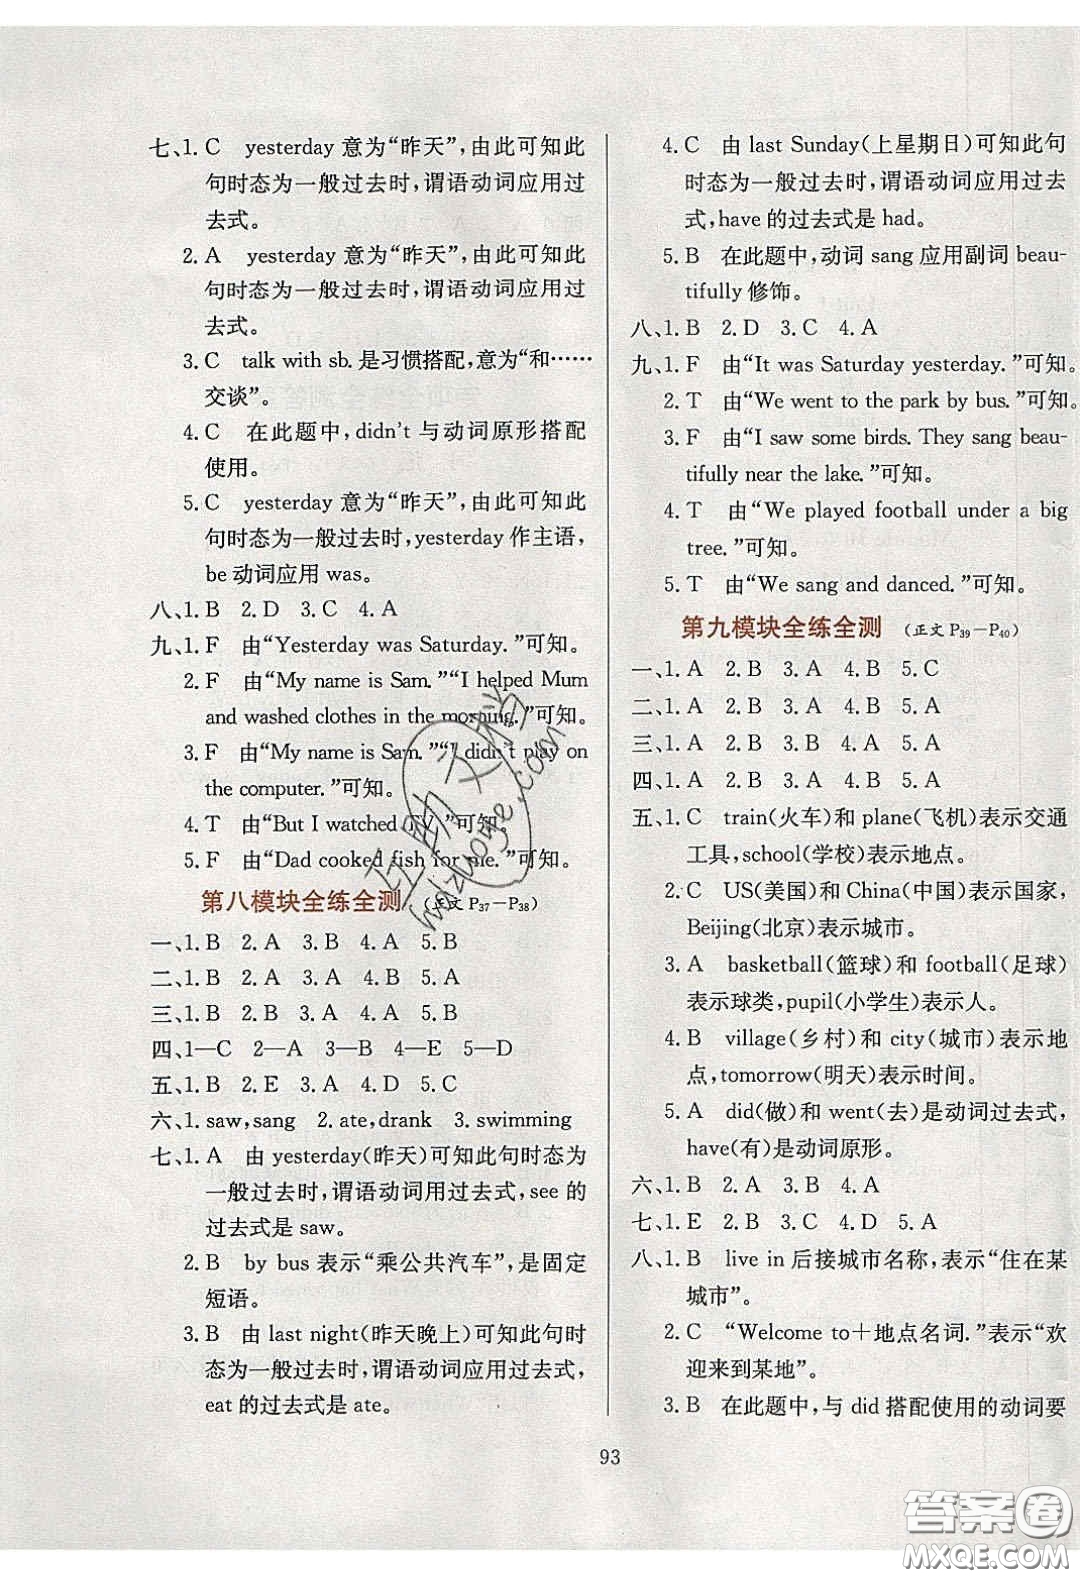 七、1. C yesterday 意为“昨天”,由此可知此
句时态为一般过去时,谓语动词应用过
去式。
2. A yesterday 意为“昨天”,由此可知此
句时态为一般过去时,谓语动词应用过
去式。
3. C talk with sb. 是习惯搭配,意为“和……
交谈”。
4. C 在此题中,didn't 与动词原形搭配
使用。
5. C yesterday 意为“昨天”,由此可知此
句时态为一般过去时,yesterday 作主语,
be 动词应用 was。
八、1. B 2. D 3. C 4. A
九、1. F 由“Yesterday was Saturday.”可知。
2. F 由“My name is Sam.”“I helped Mum
and washed clothes in the morning.”可知。
3. F 由“My name is Sam.”“I didn't play on
the computer.”可知。
4. T 由“But I watched TV.”可知。
5. F 由“Dad cooked fish for me.”可知。
第八模块全练全测 (正文 P37—P38)
一、1. B 2. A 3. B 4. A 5. B
二、1. B 2. A 3. A 4. B 5. A
三、1. B 2. B 3. A 4. A 5. B
四、1—C 2—A 3—B 4—E 5—D
五、1. B 2. E 3. A 4. D 5. C
六、1. saw,sang 2. ate,drank 3. swimming
七、1. A 由 yesterday(昨天)可知此句时态为
一般过去时,谓语动词用过去式,see 的
过去式是 saw。
2. B by bus 表示“乘公共汽车”,是固定
短语。
3. B 由 last night(昨天晚上)可知此句时
态为一般过去时,谓语动词应用过去式,
eat 的过去式是 ate。
4. C 由 last Sunday(上星期日)可知此句
时态为一般过去时,谓语动词应用过去
式,have 的过去式是 had。
5. B 在此题中,动词 sang 应用副词 beau-
tifully 修饰。
八、1. B 2. D 3. C 4. A
九、1. F 由“It was Saturday yesterday.”可知。
2. T 由“We went to the park by bus.”可知。
3. F 由“I saw some birds. They sang beau-
tifully near the lake.”可知。
4. T 由“We played football under a big
tree.”可知。
5. T 由“We sang and danced.”可知。
第九模块全练全测 (正文 P39—P40)
一、1. A 2. B 3. A 4. B 5. C
二、1. A 2. B 3. A 4. B 5. A
三、1. A 2. B 3. A 4. B 5. A
四、1. A 2. B 3. A 4. B 5. A
五、1. C train(火车)和 plane(飞机)表示交通
工具,school(学校)表示地点。
2. C US(美国)和 China(中国)表示国家,
Beijing(北京)表示城市。
3. A basketball(篮球)和 football(足球)
表示球类,pupil(小学生)表示人。
4. B village(乡村)和 city(城市)表示地
点,tomorrow(明天)表示时间。
5. A did(做)和 went(去)是动词过去式,
have(有)是动词原形。
六、1. B 2. A 3. B 4. A
七、1. E 2. B 3. C 4. D 5. A
八、1. B live in 后接城市名称,表示“住在某
城市”。
2. C “Welcome to+地点名词.”表示“欢
迎来到某地”。
3. B 在此题中,与 did 搭配使用的动词要
93
答案卷
MXQE.COM